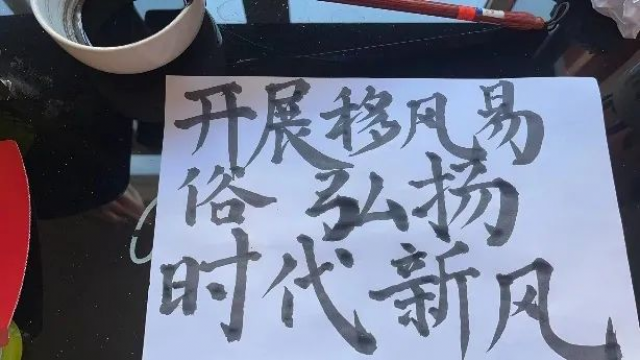 开展移风易
俗 弘扬
时代新风